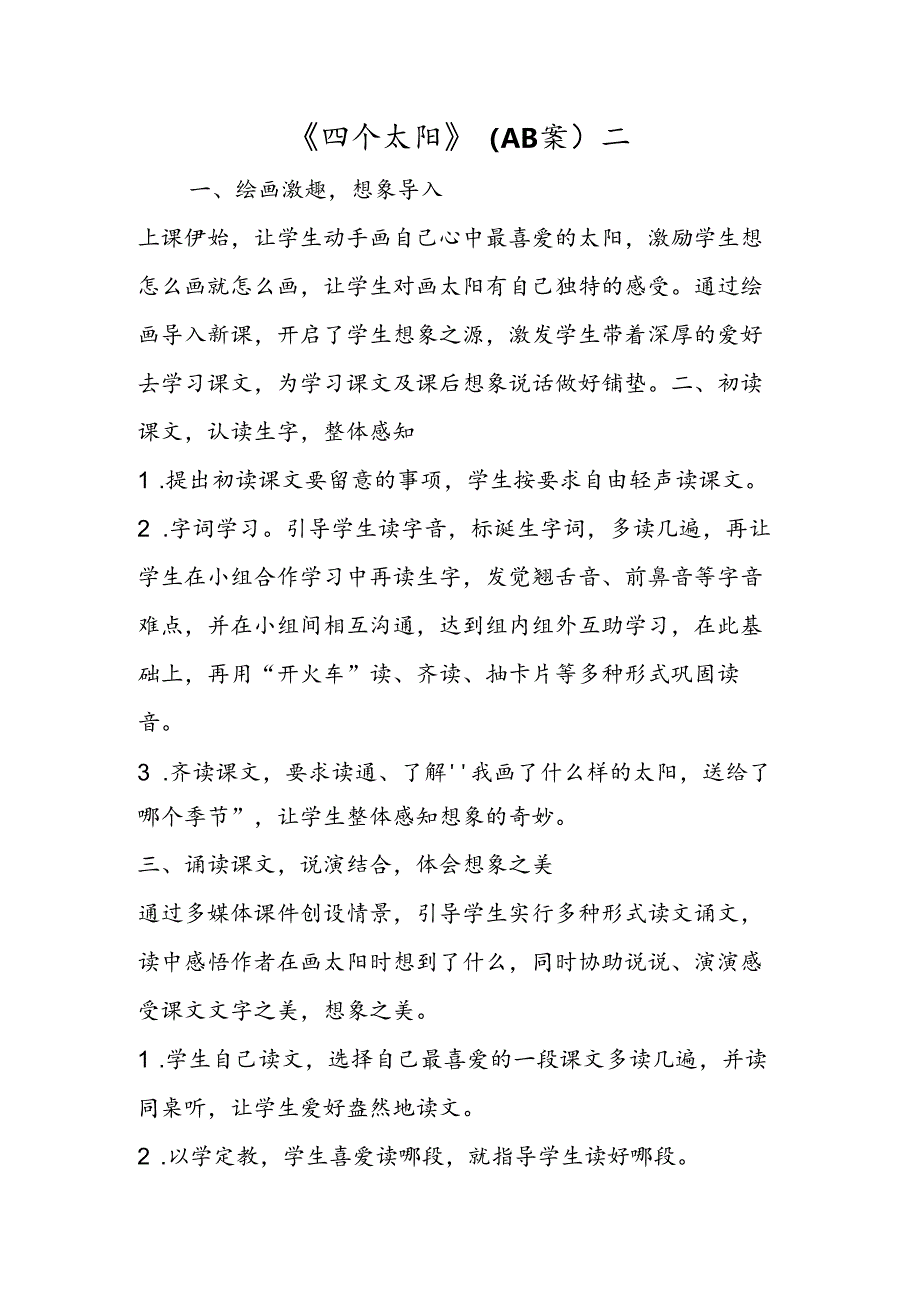 《四个太阳》 (AB案）二
一、绘画激趣，想象导入
上课伊始，让学生动手画自己心中最喜爱的太阳，激励学生想
怎么画就怎么画，让学生对画太阳有自己独特的感受。通过绘
画导入新课，开启了学生想象之源，激发学生带着深厚的爱好
去学习课文，为学习课文及课后想象说话做好铺垫。二、初读
课文，认读生字，整体感知
1 .提出初读课文要留意的事项，学生按要求自由轻声读课文。
2 .字词学习。引导学生读字音，标诞生字词，多读几遍，再让
学生在小组合作学习中再读生字，发觉翘舌音、前鼻音等字音
难点，并在小组间相互沟通，达到组内组外互助学习，在此基
础上，再用“开火车”读、齐读、抽卡片等多种形式巩固读
音。
3 .齐读课文，要求读通、了解''我画了什么样的太阳，送给了
哪个季节”，让学生整体感知想象的奇妙。
三、诵读课文，说演结合，体会想象之美
通过多媒体课件创设情景，引导学生实行多种形式读文诵文，
读中感悟作者在画太阳时想到了什么，同时协助说说、演演感
受课文文字之美，想象之美。
1 .学生自己读文，选择自己最喜爱的一段课文多读几遍，并读
同桌听，让学生爱好盎然地读文。
2 .以学定教，学生喜爱读哪段，就指导学生读好哪段。